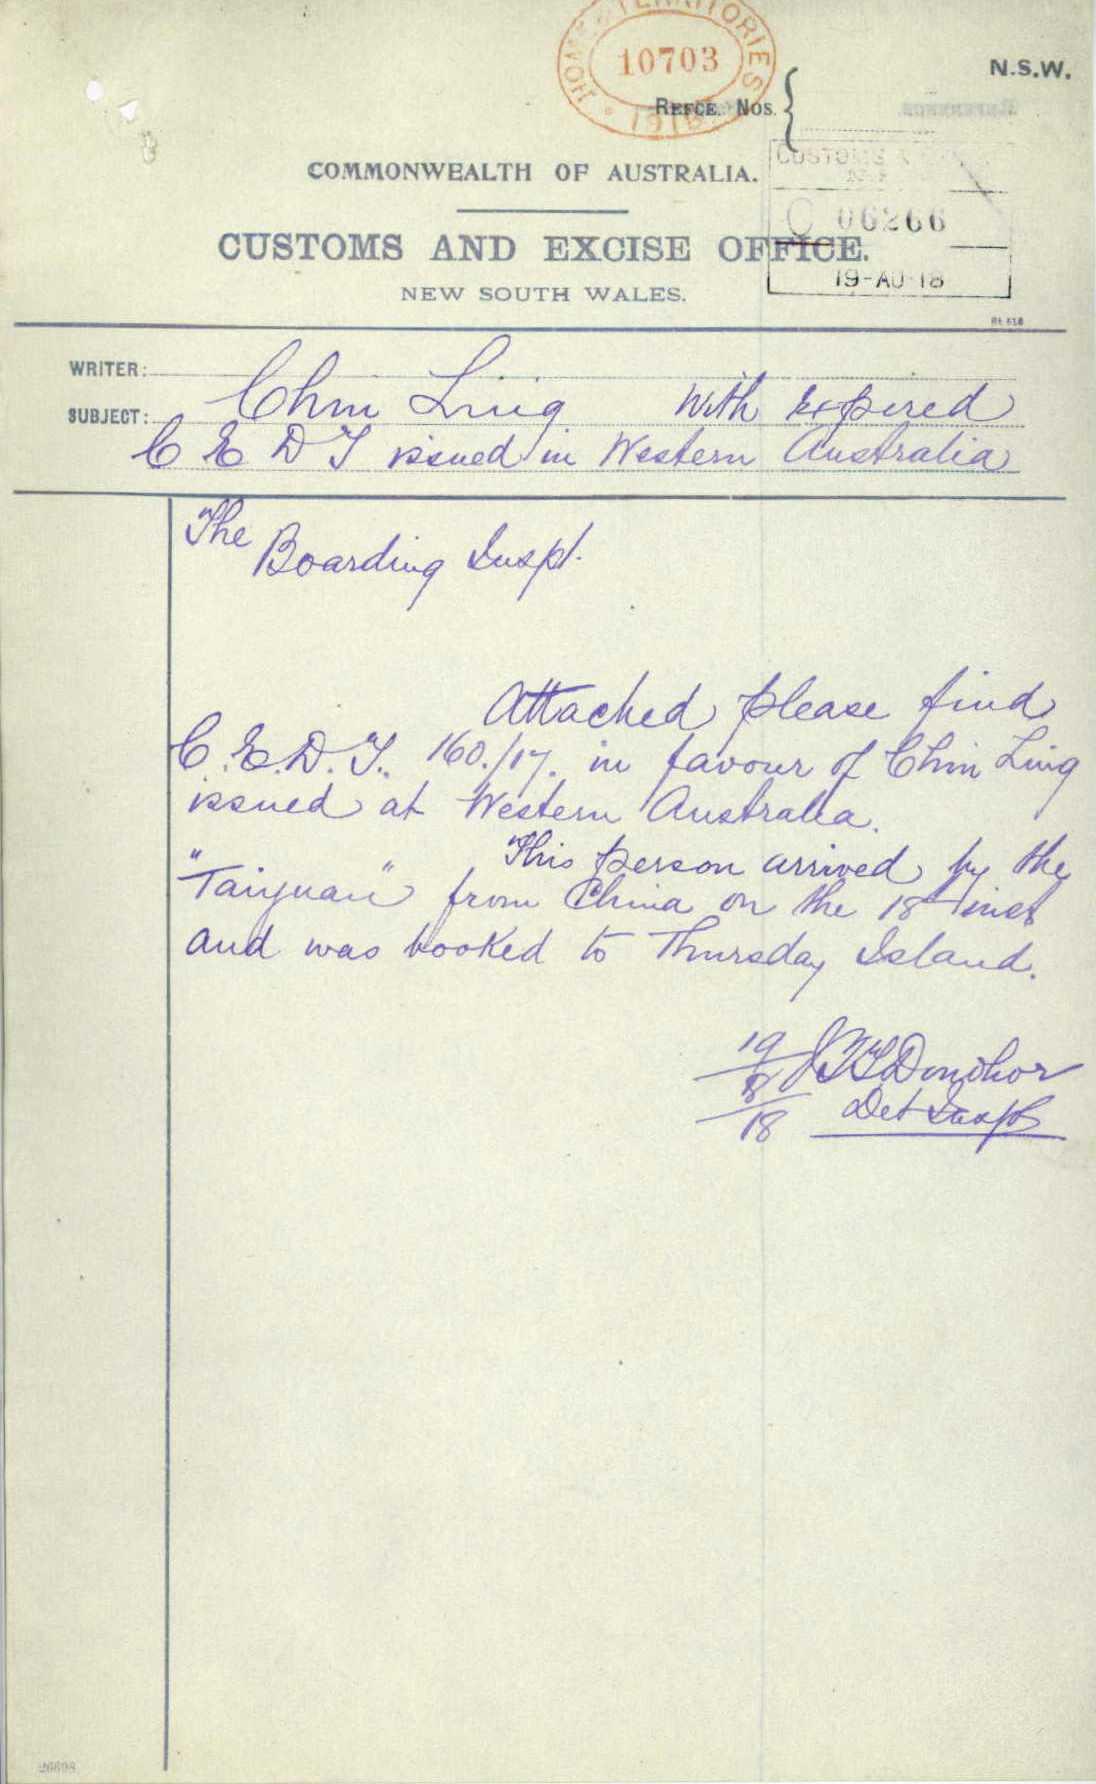 HOME & TERRITORIES
10703
1918
N.S.W.
REFCE. NOS.
CUSTOMS
COMMONWEALTH OF AUSTRALIA.
C 06266
CUSTOMS AND EXCISE OFFICE.
19-AU-18
NEW SOUTH WALES.
WRITER:
SUBJECT: Chin Ling With Expired
C E D T issued in Western Australia
The
Boarding Inspt.
Attached please find
C.E.D.T. 160./17. in favour of Chin Ling
issued at Western Australia.
This person arrived by the
"Taiyuan" from China on the 18th inst
and was booked to Thursday Island.
19/8/18 Donohoe
Det Inspr